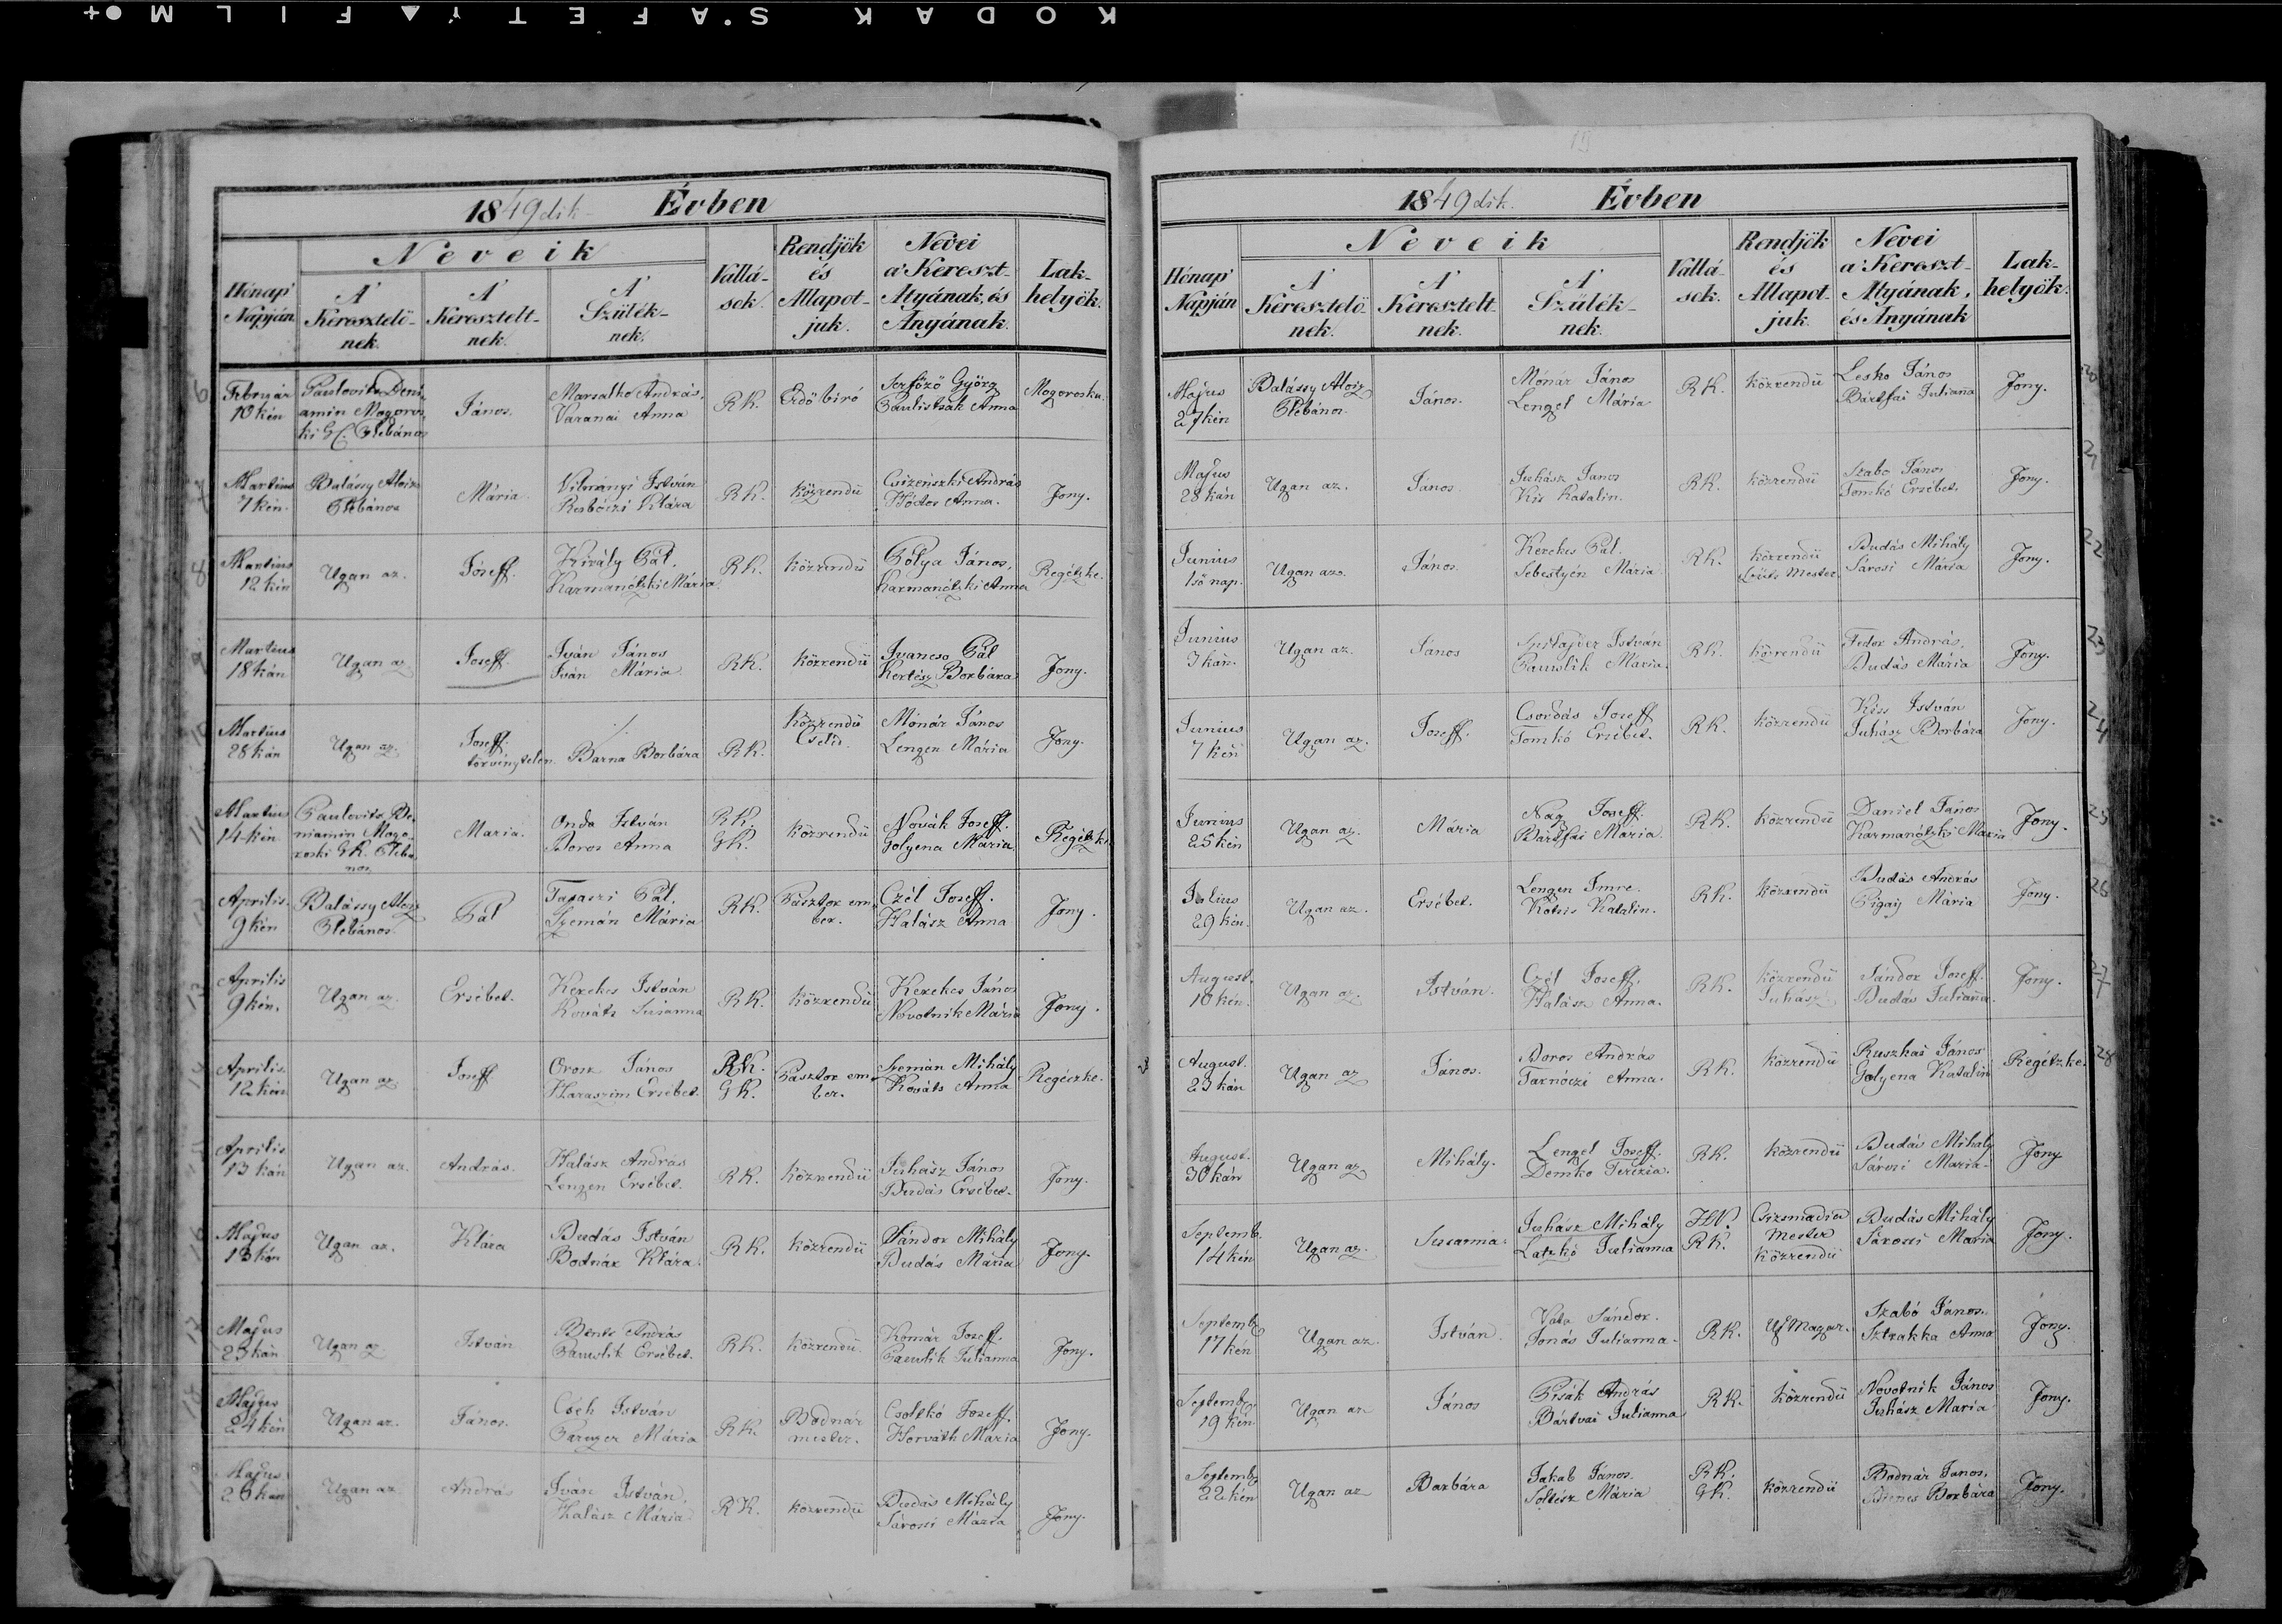 KODAK SAFETY FILM
1849dik Évben
Neveik
Hónap' Napján
A' Keresztelő-nek.
A' Keresztelt-nek.
A' Szülék-nek.
Vallá-sok.
Rendjök és Állapot-juk.
Nevei a' Kereszt-Atyának, és Anyának.
Lak-helyök.
6 Februar 10kén Paulovits Beni amin Mogoros ki G.C. Plébános János. Marsalko András, Varanai Anna RK. Erdő biró Serfőző Györg Paulistsák Anna Mogoroska.
7 Martius 7kén. Balássy Alois Plébános Mária. Vilmányi István Rasbóczi Klára RK. közrendü Csizenszki András Fodor Anna. Jony.
8 Martius 12kén Ugan az. Jóseff. Király Pál. Karmanótzki Mária RK. közrendü Pólya János, Karmanótzki Anna Regétzke.
9 Martius 18kán Ugan az Joseff. Iván János Iván Mária RK. közrendü Ivancso Pál Kertész Borbára Jony.
10 Martius 28kán Ugan az. Joseff. törvénytelen / Barna Borbára RK. közrendü Cseléd. Mónár János Lengen Mária Jony.
11 Martius 14-kén Paulovits Be niamin Mogo roski GK. Pleba nos Maria. Onda István Boros Anna RK. GK. közrendü Novák Joseff. Golyena Maria Regétzke
12 Aprilis 9kén Balássy Alois Plébános Pál Tapaszi Pál. Szemán Mária RK. Pásztor em ber. Czél Joseff. Halász Anna Jony.
13 Aprilis 9kén. Ugan az. Ersébet. Kerekes István Kováts Susanna RK. közrendü Kerekes János Novotnik Mária Jony.
14 Aprilis 12kén Ugan az Joseff Orosz János Haraszim Ersébet. RK. GK. Pasztor em ber. Szemán Mihály Kováts Anna Regéczke.
15 Aprilis 13kán Ugan az. András. Halász András Lengen Ersébet. RK. közrendü Juhász János Dudás Ersébet. Jony.
16 Május 13kán Ugan az. Klára Dudás István Bodnár Klára RK. közrendü Sándor Mihály Dudás Mária Jony.
17 Május 23kán Ugan az István Bents András Pauslik Ersébet. RK. közrendü. Komár Joseff. Pauslik Julianna Jony.
18 Május 24kén Ugan az. János. Cséh István Paruzer Mária RK. Bodnár mester. Csollkó Joseff. Horváth Maria Jony.
Május 26kán Ugan az András Iván István, Halász Mária RK. közrendü Dudás Mihály Sárossi Mária Jony.
1849dik. Évben
Neveik
Hónap' Napján
A' Keresztelő-nek.
A' Keresztelt-nek.
A' Szülék-nek.
Vallá-sok.
Rendjök és Állapot-juk.
Nevei a' Kereszt-Atyának, és Anyának
Lak-helyök.
Május 27kén Balássy Aloiz Plébános. János. Mónár János Lengel Mária RK. közrendü Lesko János Bártfai Julianna Jony. 20
Május 28kán Ugan az. János. Juhász Janos Kis Katalin. RK. közrendü Szabo János Tomkó Ersébet. Jony. 21
Junius 1ső nap. Ugan az. János. Kerekes Pál. Sebestyén Mária RK. közrendü Szüts Mester. Dudás Mihály Sárosi Mária Jony. 22
Junius 3kán. Ugan az. János István Pauslik Maria. RK. közrendü Fedor András, Dudás Mária Jony. 23
Junius 7kén Ugan az. Joseff. Csordás Joseff Tomkó Ersébet. RK. közrendü Kiss István Juhász Borbára Jony. 24
Junius 25kén Ugan az. Mária Nag Joseff. Bártfai Maria. RK. közrendü Daniel János Karmanótzki Maria Jony. 25
Julius 29kén. Ugan az. Ersébet. Lengen Imre. Kotsis Katalin. RK. közrendü Dudás András Pigaij Mária Jony. 26
August. 10kén. Ugan az. István. Czél Joseff. Halász Anna. RK. közrendü Juhász. Sándor Joseff. Dudás Julianna. Jony. 27
August. 23kán Ugan az János. Boros András Tarnóczi Anna. RK. közrendü Ruszkai János Golyena Katalin Regétzke. 28
August. 30kán Ugan az Mihály. Lengel Joseff. Demko Terézia. RK. közrendü Dudás Mihály Sárosi Maria. Jony
Septemb. 14kén Ugan az. Susanna. Juhász Mihály Latzkó Julianna HV. RK. Csizmadia mester közrendü Dudás Mihály Sárossi Maria Jony.
Septemb 17kén Ugan az István. Vata Sándor. Jonás Julianna. RK. Uj Magar. Szabó János. Sztrakka Anna Jony.
Septemb 19kén Ugan az János Pisák András Bártvai Julianna RK. közrendü Novotnik János Juhász Maria Jony.
Septemb 22kén Ugan az Barbára Jakab János. Soltész Mária RK. GK. közrendü Bodnár Janos, Borbára Jony.